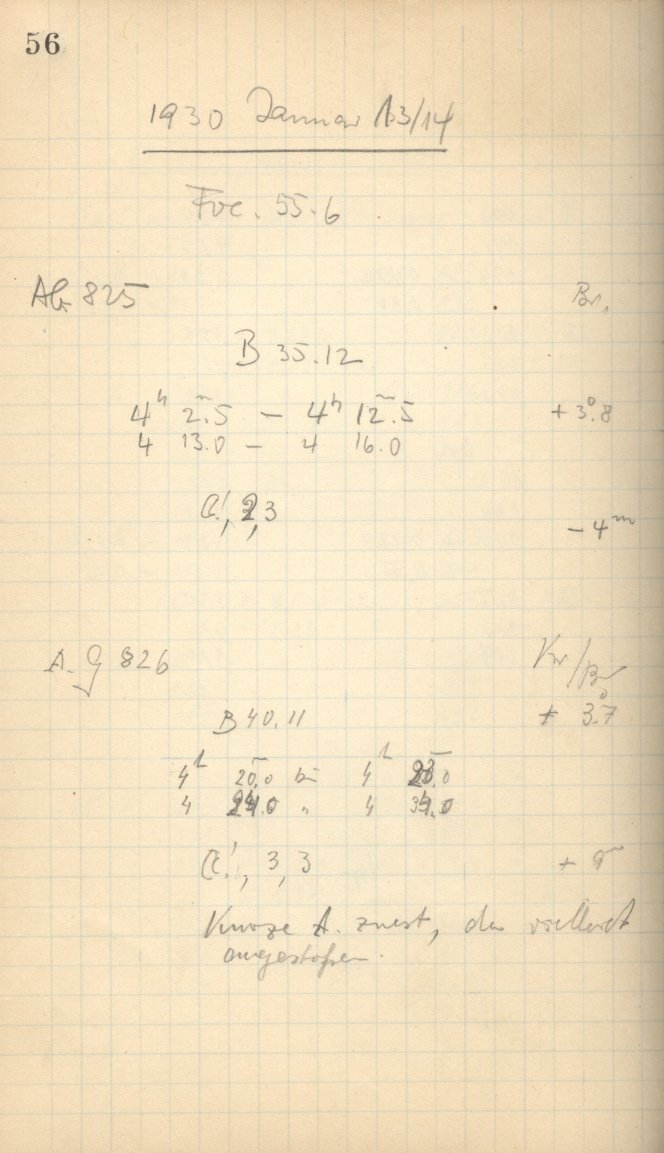 56
1930 Januar 13/14
Foc. 55.6
AG 825 Br.
B 35.12
4h 2m.5 — 4h 12m.5 +3°.8
4 13.0 — 4 16.0
2,3
−4m
A.G 826 Kr/Br
B 40.11 + 3°.7
4h 20.0 bis 4h
4 " 4
3,3 + 9m
Kurze A. zuerst, da vielleicht
angestoßen.